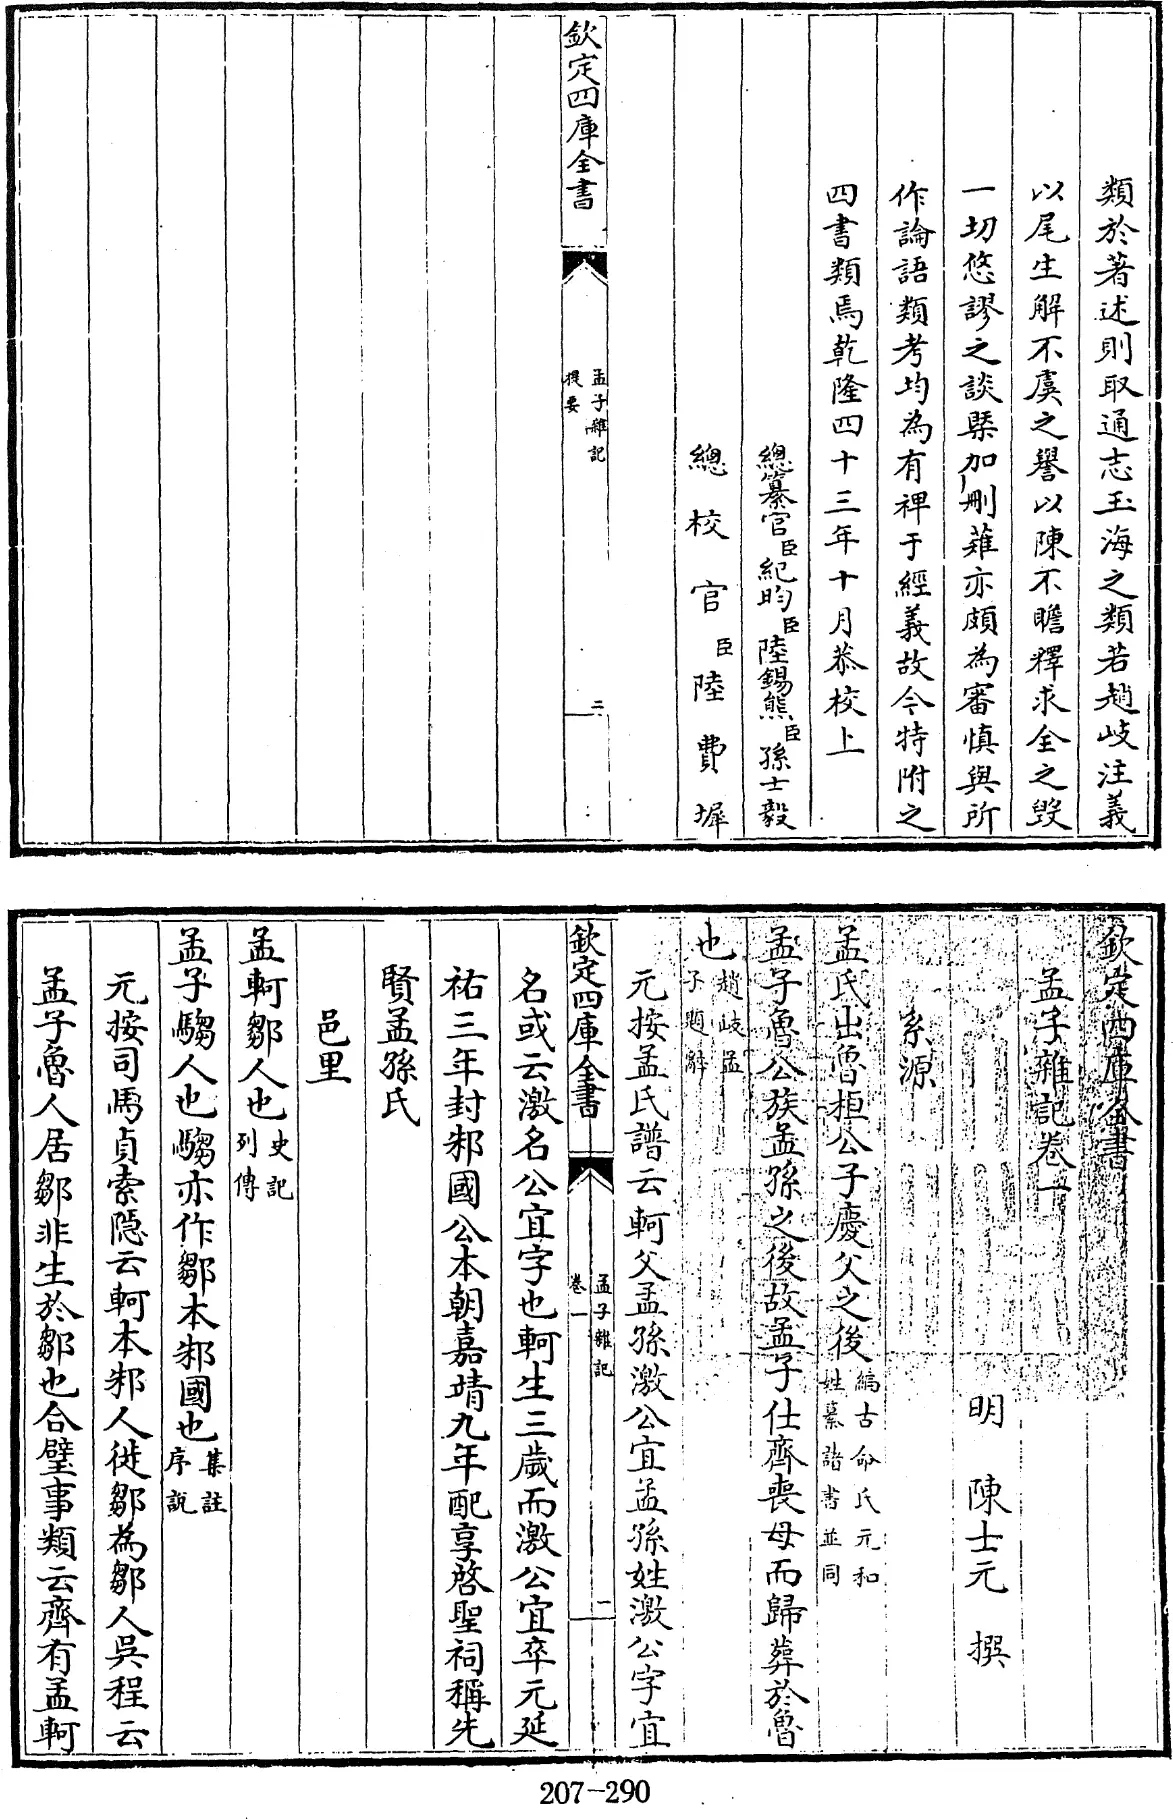 類於著述則取通志玉海之類若趙岐注義
以尾生解不虞之譽以陳不瞻釋求全之毀
一切悠謬之談槩加刪薙亦頗為審慎與所
作論語類考均為有裨于經義故今特附之
四書類焉乾隆四十三年十月恭校上
總纂官臣紀昀臣陸錫熊臣孫士毅
總校官臣陸費墀
欽定四庫全書
孟子雜記
提要
二
欽定四庫全書
孟子雜記卷一
明 陳士元 撰
系源
孟氏出魯桓公子慶父之後編古命氏元和
姓纂諸書並同
孟子魯公族孟孫之後故孟子仕齊喪母而歸葬於魯
也趙岐孟
子題辭
元按孟氏譜云軻父孟孫激公宜孟孫姓激公字宜
欽定四庫全書
孟子雜記
卷一
一
名或云激名公宜字也軻生三歲而激公宜卒元延
祐三年封邾國公本朝嘉靖九年配享啓聖祠稱先
賢孟孫氏
邑里
孟軻鄒人也史記
列傳
孟子騶人也騶亦作鄒本邾國也集註
序說
元按司馬貞索隱云軻本邾人徙鄒為鄒人吳程云
孟子魯人居鄒非生於鄒也合璧事類云齊有孟軻
207-290